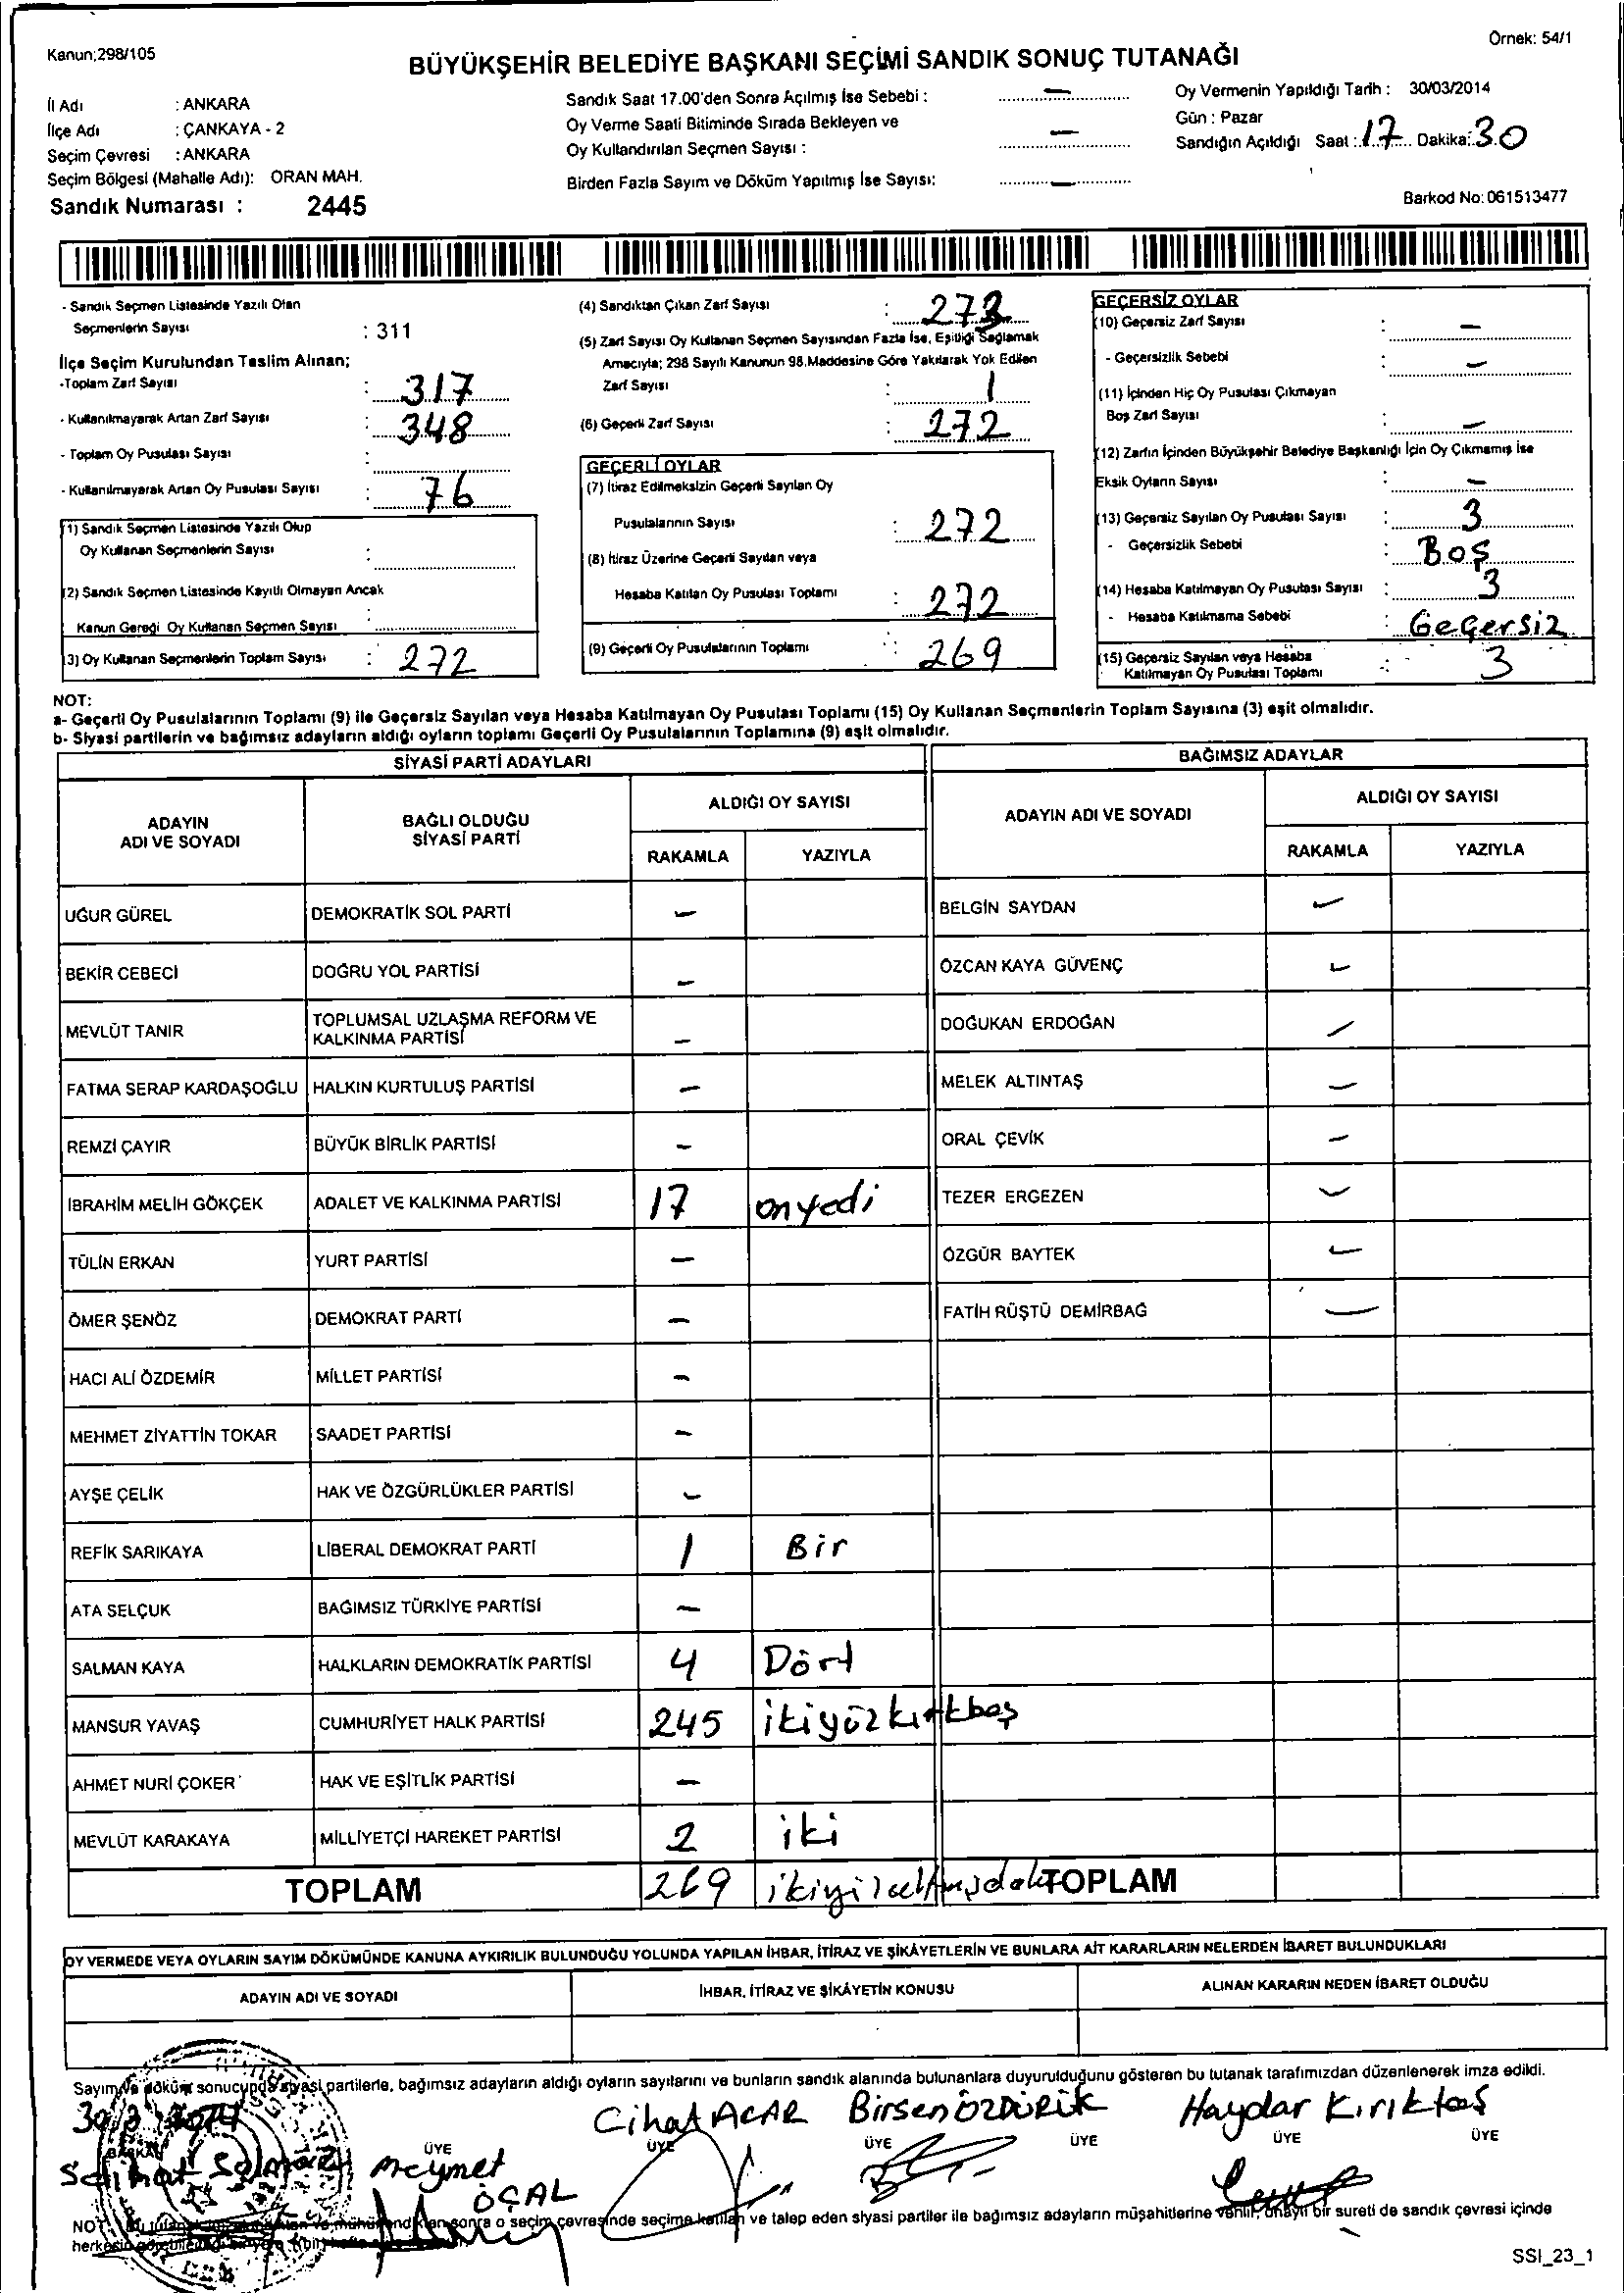 Kanun;298/105
Örnek: 54/1
BÜYÜKŞEHİR BELEDİYE BAŞKANI SEÇİMİ SANDIK SONUÇ TUTANAĞI
İl Adı : ANKARA
İlçe Adı : ÇANKAYA - 2
Seçim Çevresi : ANKARA
Seçim Bölgesi (Mahalle Adı): ORAN MAH.
Sandık Numarası : 2445
Sandık Saat 17.00'den Sonra Açılmış İse Sebebi : —
Oy Verme Saati Bitiminde Sırada Bekleyen ve
Oy Kullandırılan Seçmen Sayısı : —
Birden Fazla Sayım ve Döküm Yapılmış İse Sayısı: —
Oy Vermenin Yapıldığı Tarih : 30/03/2014
Gün : Pazar
Sandığın Açıldığı Saat : 17 Dakika: 30
Barkod No: 061513477
- Sandık Seçmen Listesinde Yazılı Olan
Seçmenlerin Sayısı : 311
İlçe Seçim Kurulundan Teslim Alınan;
-Toplam Zarf Sayısı : 317
- Kullanılmayarak Artan Zarf Sayısı : 348
- Toplam Oy Pusulası Sayısı :
- Kullanılmayarak Artan Oy Pusulası Sayısı : 76
(1) Sandık Seçmen Listesinde Yazılı Olup
Oy Kullanan Seçmenlerin Sayısı :
(2) Sandık Seçmen Listesinde Kayıtlı Olmayan Ancak
Kanun Gereği Oy Kullanan Seçmen Sayısı
(3) Oy Kullanan Seçmenlerin Toplam Sayısı : 272
(4) Sandıktan Çıkan Zarf Sayısı : 273
(5) Zarf Sayısı Oy Kullanan Seçmen Sayısından Fazla İse, Eşitliği Sağlamak
Amacıyla; 298 Sayılı Kanunun 98.Maddesine Göre Yakılarak Yok Edilen
Zarf Sayısı : 1
(6) Geçerli Zarf Sayısı : 272
GEÇERLİ OYLAR
(7) İtiraz Edilmeksizin Geçerli Sayılan Oy
Pusulalarının Sayısı : 272
(8) İtiraz Üzerine Geçerli Sayılan veya
Hesaba Katılan Oy Pusulası Toplamı : 272
(9) Geçerli Oy Pusulalarının Toplamı : 269
GEÇERSİZ OYLAR
(10) Geçersiz Zarf Sayısı : —
- Geçersizlik Sebebi : —
(11) İçinden Hiç Oy Pusulası Çıkmayan
Boş Zarf Sayısı : —
(12) Zarfın İçinden Büyükşehir Belediye Başkanlığı İçin Oy Çıkmamış İse
Eksik Oyların Sayısı : —
(13) Geçersiz Sayılan Oy Pusulası Sayısı : 3
- Geçersizlik Sebebi : Boş
(14) Hesaba Katılmayan Oy Pusulası Sayısı : 3
- Hesaba Katılmama Sebebi : Geçersiz
(15) Geçersiz Sayılan veya Hesaba
Katılmayan Oy Pusulası Toplamı : 3
NOT:
a- Geçerli Oy Pusulalarının Toplamı (9) ile Geçersiz Sayılan veya Hesaba Katılmayan Oy Pusulası Toplamı (15) Oy Kullanan Seçmenlerin Toplam Sayısına (3) eşit olmalıdır.
b- Siyasi partilerin ve bağımsız adayların aldığı oyların toplamı Geçerli Oy Pusulalarının Toplamına (9) eşit olmalıdır.
SİYASİ PARTİ ADAYLARI
ADAYIN ADI VE SOYADI BAĞLI OLDUĞU SİYASİ PARTİ ALDIĞI OY SAYISI
RAKAMLA YAZIYLA
UĞUR GÜREL DEMOKRATİK SOL PARTİ —
BEKİR CEBECİ DOĞRU YOL PARTİSİ —
MEVLÜT TANIR TOPLUMSAL UZLAŞMA REFORM VE KALKINMA PARTİSİ —
FATMA SERAP KARDAŞOĞLU HALKIN KURTULUŞ PARTİSİ —
REMZİ ÇAYIR BÜYÜK BİRLİK PARTİSİ —
İBRAHİM MELİH GÖKÇEK ADALET VE KALKINMA PARTİSİ 17 onyedi
TÜLİN ERKAN YURT PARTİSİ —
ÖMER ŞENÖZ DEMOKRAT PARTİ —
HACI ALİ ÖZDEMİR MİLLET PARTİSİ —
MEHMET ZİYATTİN TOKAR SAADET PARTİSİ —
AYŞE ÇELİK HAK VE ÖZGÜRLÜKLER PARTİSİ —
REFİK SARIKAYA LİBERAL DEMOKRAT PARTİ 1 Bir
ATA SELÇUK BAĞIMSIZ TÜRKİYE PARTİSİ —
SALMAN KAYA HALKLARIN DEMOKRATİK PARTİSİ 4 Dört
MANSUR YAVAŞ CUMHURİYET HALK PARTİSİ 245 ikiyüzkırkbeş
AHMET NURİ ÇOKER HAK VE EŞİTLİK PARTİSİ —
MEVLÜT KARAKAYA MİLLİYETÇİ HAREKET PARTİSİ 2 iki
TOPLAM 269
BAĞIMSIZ ADAYLAR
ADAYIN ADI VE SOYADI ALDIĞI OY SAYISI
RAKAMLA YAZIYLA
BELGİN SAYDAN —
ÖZCAN KAYA GÜVENÇ —
DOĞUKAN ERDOĞAN —
MELEK ALTINTAŞ —
ORAL ÇEVİK —
TEZER ERGEZEN —
ÖZGÜR BAYTEK —
FATİH RÜŞTÜ DEMİRBAĞ —
TOPLAM
OY VERMEDE VEYA OYLARIN SAYIM DÖKÜMÜNDE KANUNA AYKIRILIK BULUNDUĞU YOLUNDA YAPILAN İHBAR, İTİRAZ VE ŞİKÂYETLERİN VE BUNLARA AİT KARARLARIN NELERDEN İBARET BULUNDUKLARI
ADAYIN ADI VE SOYADI İHBAR, İTİRAZ VE ŞİKÂYETİN KONUSU ALINAN KARARIN NEDEN İBARET OLDUĞU
Sayım ve döküm sonucunda siyasi partilerle, bağımsız adayların aldığı oyların sayılarını ve bunların sandık alanında bulunanlara duyurulduğunu gösteren bu tutanak tarafımızdan düzenlenerek imza edildi.
Cihat ACAR Birsen ÖZDÜRÜK Haydar Kırıktaş
BAŞKAN ÜYE ÜYE ÜYE ÜYE ÜYE ÜYE
Meymet
ÖÇAL
NOT: sonra o seçim çevresinde seçime katılan ve talep eden siyasi partiler ile bağımsız adayların müşahitlerine verilir, onaylı bir sureti de sandık çevresi içinde
SSI_23_1